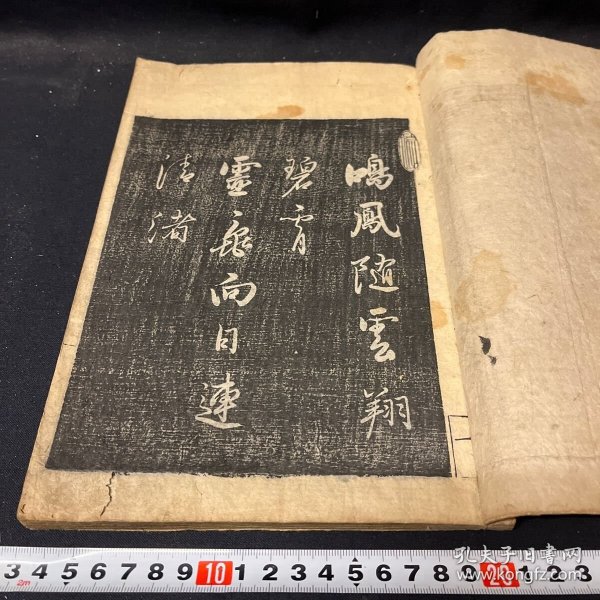 鳴鳳随雲翔
碧霄
靈龜向日連
清渚
3 4 5 6 7 8 9 10 1 2 3 4 5 6 7 8 9 20 1 2 3
2m
孔夫子旧书网
www.kongfz.com